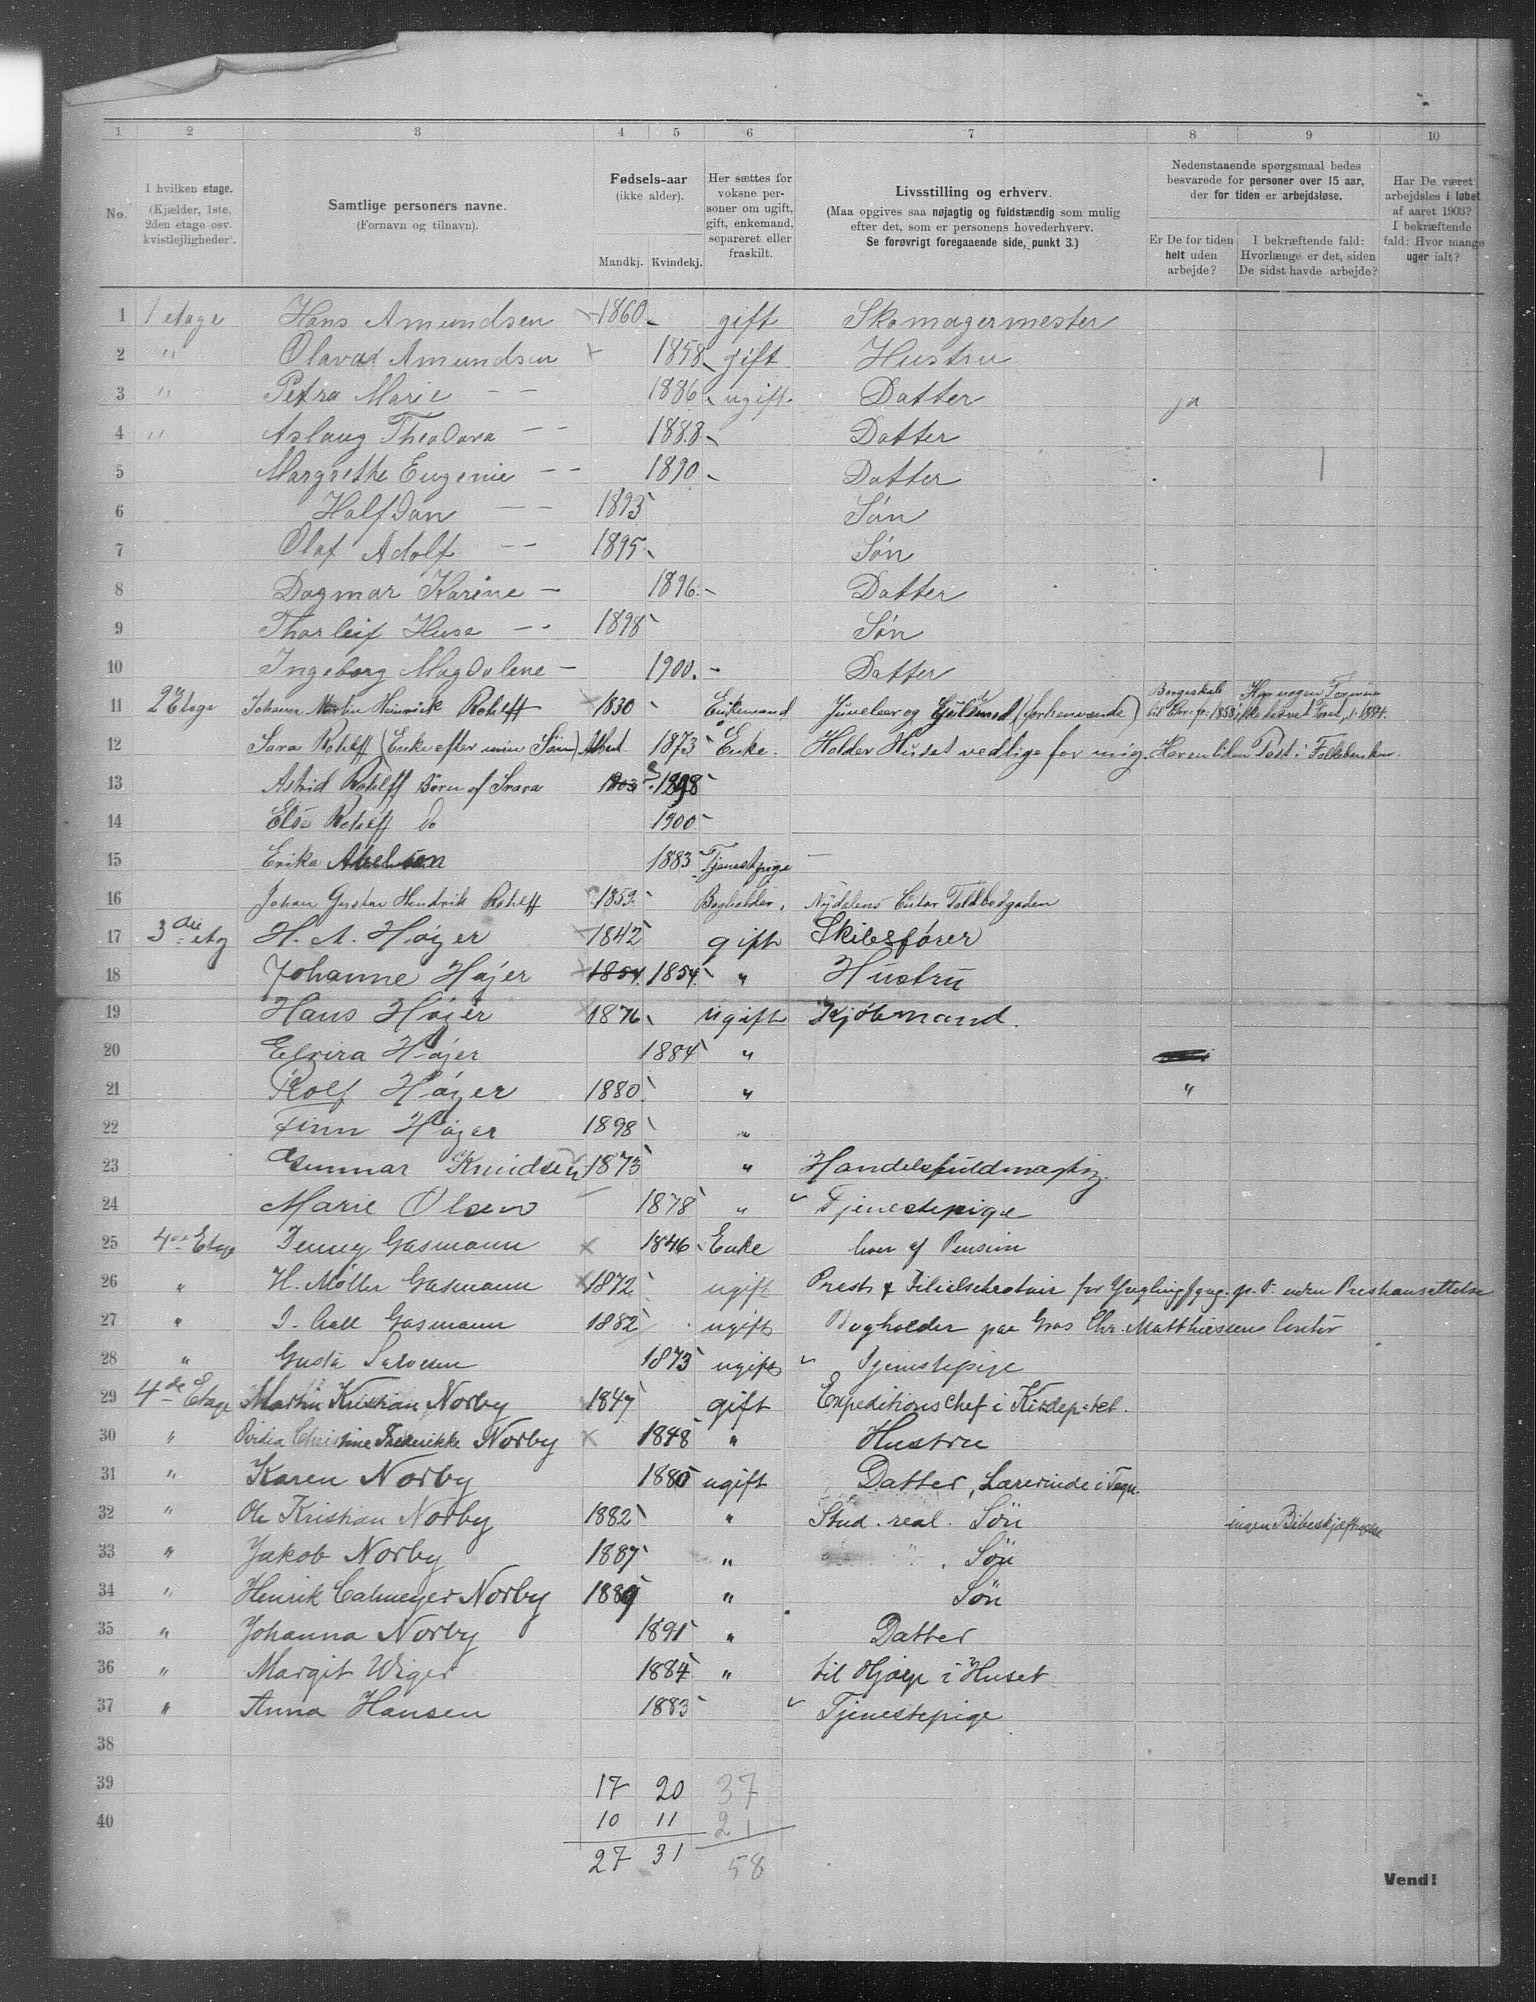 1 2 3 4 5 6 7 8 9 10
No.
I hvilken etage.
(Kjælder, 1ste,
2den etage osv.
kvistlejligheder).
Samtlige personers navne.
(Fornavn og tilnavn).
Fødsels-aar
(ikke alder).
Mandkj. Kvindekj.
Her sættes for
voksne per-
soner om ugift,
gift, enkemand,
separeret eller
fraskilt.
Livsstilling og erhverv.
(Maa opgives saa nøjagtig og fuldstændig som mulig
efter det, som er personens hovederhverv.
Se forøvrigt foregaaende side, punkt 3.)
Nedenstaaende spørgsmaal bedes
besvarede for personer over 15 aar,
der for tiden er arbejdsløse.
Er De for tiden
helt uden
arbejde?
I bekræftende fald:
Hvorlænge er det, siden
De sidst havde arbejde?
Har De været
arbejdsløs i løbet
af aaret 1903?
I bekræftende
fald: Hvor mange
uger ialt?
1 1 etage Hans Amundsen 1860 gift Skomagermester
2 " Olava Amundsen 1858 gift Hustru
3 " Petra Marie — — 1886 ugift Datter ja
4 " Aslaug Theodora — — 1888 Datter
5 Margrethe Eugenie — — 1890 Datter
6 Halfdan — — 1893 Søn
7 Olaf Adolf — — 1895 Søn
8 Dagmar Karine — 1896 Datter
9 Thorleif Huse — 1898 Søn
10 Ingeborg Magdalene — 1900 Datter
11 2 Etage Johann Martin Heinrick Rohlff 1830 Enkemand Juveleer og Guldsmed (forhenværende)
12 Sara Rohlff (Enke efter min Søn) 1873 Enke. Holder Huset vedlige for mig.
13 Astrid Rohlff Børn af Sara 1898
14 Else Rohlff do 1900
15 Erika Abelson 1883 Tjenestpige —
16 Johan Gustav Hendrik Rohlff 1859 Bogholder, Nydalens Contor Toldbodgaden
17 3die etag H. A. Højer 1842 gift Skibsfører
18 Johanne Højer 1854 1854 " Hustru
19 Hans Højer 1876 ugift Kjøbmand.
20 Elvira Højer 1884 "
21 Rolf Højer 1880 " "
22 Finn Højer 1898 "
23 Gunnar Knudsen 1873 " Handelsfuldmægtig
24 Marie Olsen 1878 " Tjenestepige
25 4de Etage Jenny Gasmann 1846 Enke lever af Pension
26 " H. Møller Gasmann 1872 ugift
27 " J. Aall Gasmann 1882 ugift Bogholder paa Gros Chr. Matthiesen Contor
28 " Gusta Salvesen 1873 ugift Tjenestepige
29 4de Etage Martin Kristian Norby 1847 gift Expeditionschef i Kirdep.tet.
30 " Christine Frederikke Norby 1848 " Hustru
31 " Karen Norby 1880 ugift Datter, Lærerinde i
32 " Ole Kristian Norby 1882 " Stud. real. Søn ingen Bibeskjæftigelse
33 " Jakob Norby 1887 " Søn
34 " Henrik Calmeyer Norby 1889 " Søn
35 " Johanna Norby 1891 " Datter
36 " Margit Wiger 1884 " til Hjælp i Huset
37 " Anna Hansen 1883 Tjenestepige
38
39 17 20 37
40 10 11 21
27 31 58
Vend!